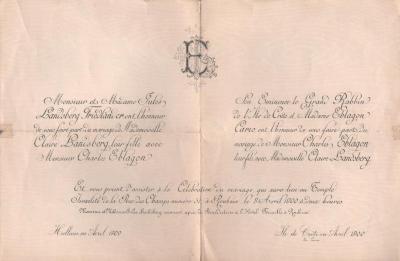 Monsieur et Madame Jules
Landsberg Friedländer ont l'honneur
de vous faire part du mariage de Mademoiselle
Claire Landsberg, leur fille avec
Monsieur Charles Eblagon
Son Eminence le Grand Rabbin
de l'Ile de Crète et Madame Eblagon
ont l'honneur de vous faire part du
mariage de Monsieur Charles Eblagon
leur fils avec Mademoiselle Claire Landsberg.
Et vous prient d'assister à la Célébration du mariage, qui aura lieu au Temple
Israélite de la Rue des Champs à Roubaix le Avril 1900 à deux heures
Monsieur et Madame Jules Landsberg l'Hôtel à Roubaix
en Avril 1900
Ile de Crète en Avril 1900